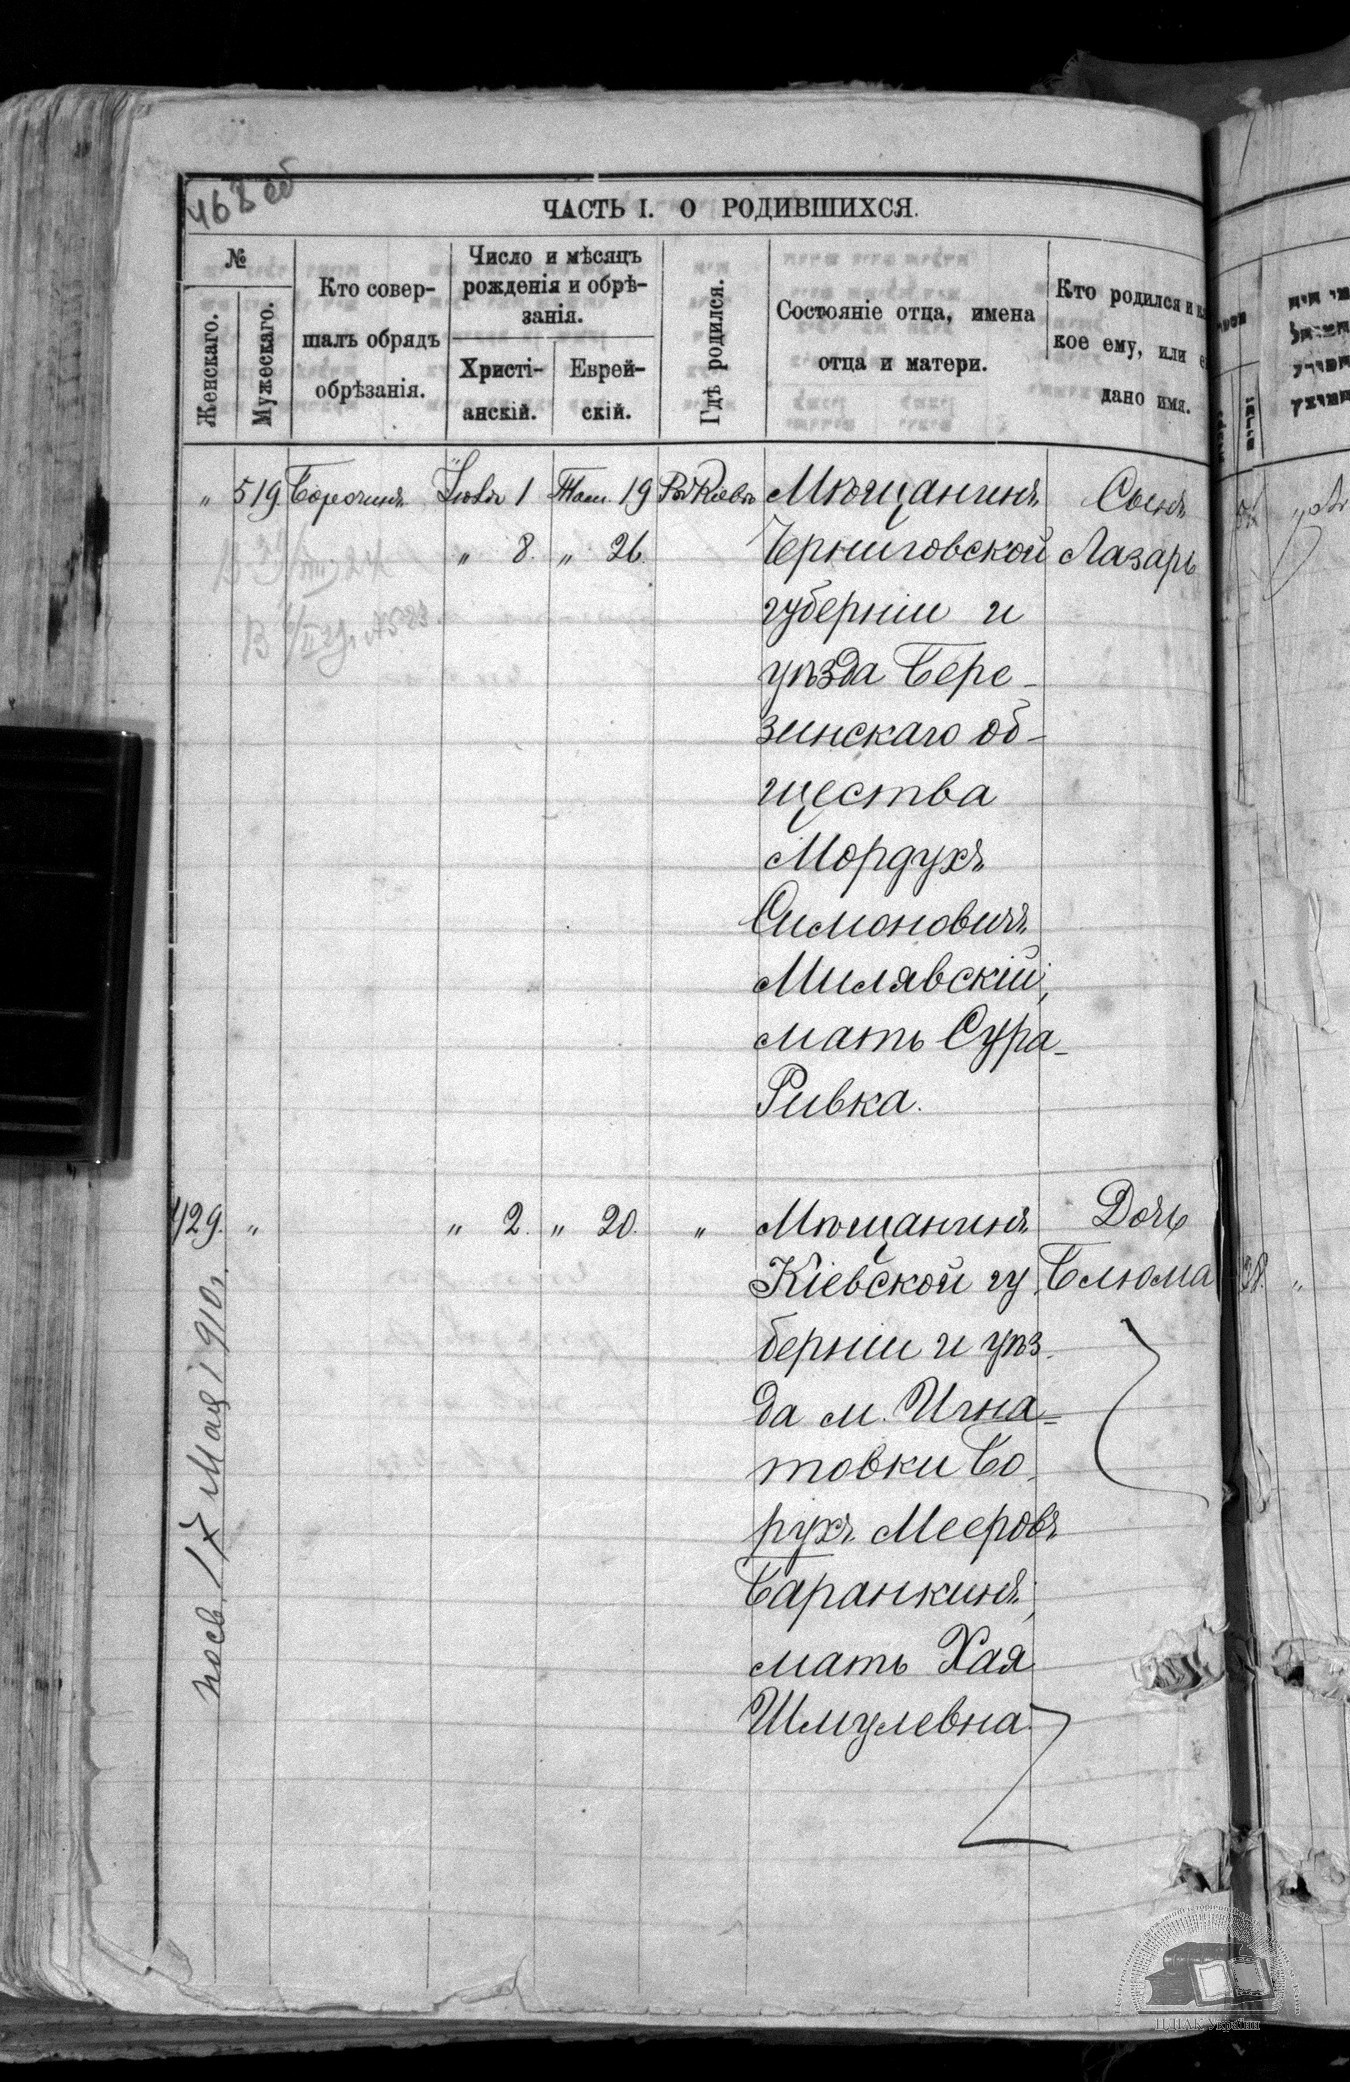 468 об
ЧАСТЬ I. О РОДИВШИХСЯ.
№
Женскаго.
Мужескаго.
Кто совер-
шалъ обрядъ
обрѣзанія.
Число и мѣсяцъ
рожденія и обрѣ-
занія.
Христі-
анскій.
Еврей-
скій.
Гдѣ родился.
Состояніе отца, имена
отца и матери.
Кто родился и
кое ему, или
дано имя.
" 519. Июля 1 Там. 19 Въ Кіевѣ Мѣщанинъ Сынъ
" 8. " 26. Черниговской Лазарь
губерніи и
уѣзда Бере-
зинскаго об-
щества
Мордухъ
Симоновичъ
Милявскій,
мать Сура-
Ривка.
429. " " 2. " 20. " Мѣщанинъ Дочь
Кіевской гу Блюма
берніи и уѣз-
да м. Игна-
товки Бо-
рухъ Мееровъ
Баранкинъ,
мать Хая
Шмулевна.
17 Мая 1910 г.
ЦДІАК України